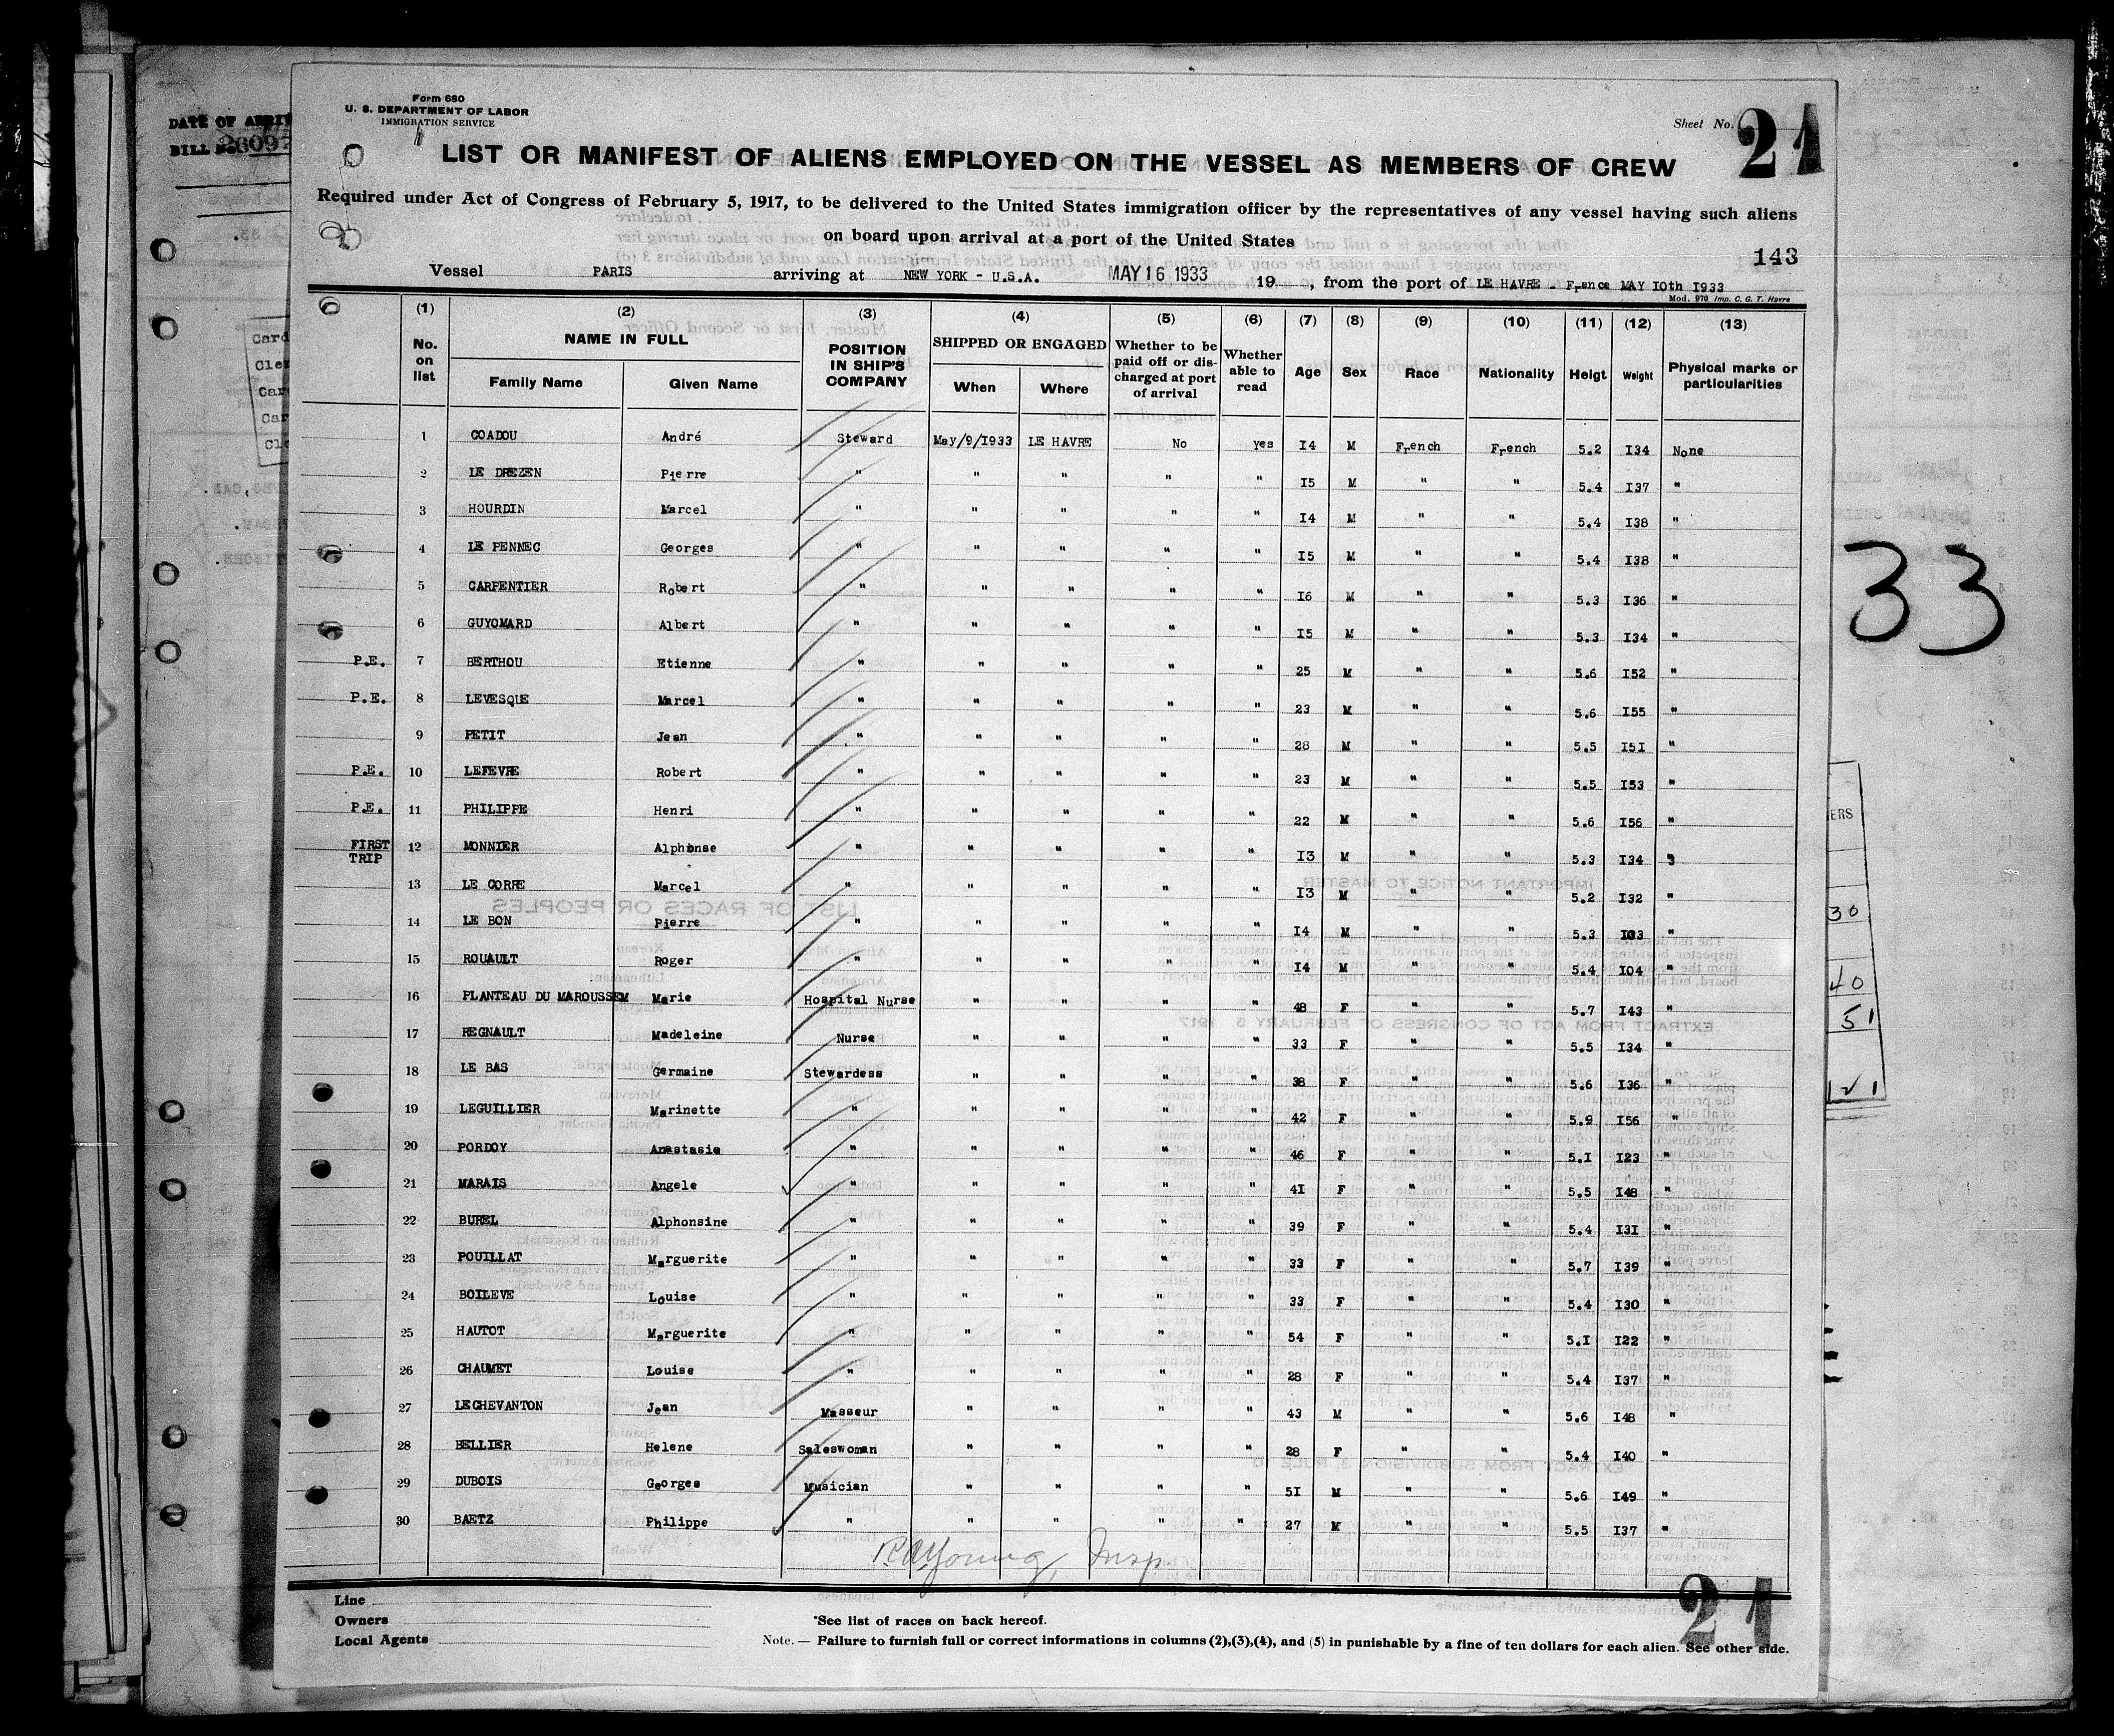 Form 680
U. S. DEPARTMENT OF LABOR
IMMIGRATION SERVICE
Sheet No. 21
LIST OR MANIFEST OF ALIENS EMPLOYED ON THE VESSEL AS MEMBERS OF CREW
Required under Act of Congress of February 5, 1917, to be delivered to the United States immigration officer by the representatives of any vessel having such aliens
on board upon arrival at a port of the United States
143
Vessel PARIS arriving at NEW YORK - U.S.A. MAY 16 1933 19 , from the port of LE HAVRE - France MAY 10th 1933
Mod. 970 Imp. C. G. T. Havre
(1) (2) (3) (4) (5) (6) (7) (8) (9) (10) (11) (12) (13)
No. on list NAME IN FULL Family Name Given Name POSITION IN SHIP'S COMPANY SHIPPED OR ENGAGED When Where Whether to be paid off or discharged at port of arrival Whether able to read Age Sex Race Nationality Heigt Weight Physical marks or particularities
1 COADOU André Steward May/9/1933 LE HAVRE No yes 14 M French French 5.2 134 None
2 LE DREZEN Pierre " " " " " 15 M " " 5.4 137 "
3 HOURDIN Marcel " " " " " 14 M " " 5.4 138 "
4 LE PENNEC Georges " " " " " 15 M " " 5.4 138 "
5 CARPENTIER Robert " " " " " 16 M " " 5.3 136 "
6 GUYOMARD Albert " " " " " 15 M " " 5.3 134 "
P.E. 7 BERTHOU Etienne " " " " " 25 M " " 5.6 152 "
P.E. 8 LEVESQUE Marcel " " " " " 23 M " " 5.6 155 "
9 PETIT Jean " " " " " 28 M " " 5.5 151 "
P.E. 10 LEFEVRE Robert " " " " " 23 M " " 5.5 153 "
P.E. 11 PHILIPPE Henri " " " " " 22 M " " 5.6 156 "
FIRST TRIP 12 MONNIER Alphonse " " " " " 13 M " " 5.3 134 "
13 LE CORRE Marcel " " " " " 13 M " " 5.2 132 "
14 LE BON Pierre " " " " " 14 M " " 5.3 103 "
15 ROUAULT Roger " " " " " 14 M " " 5.4 104 "
16 PLANTEAU DU MAROUSSEM Marie Hospital Nurse " " " " 48 F " " 5.7 143 "
17 REGNAULT Madeleine Nurse " " " " 33 F " " 5.5 134 "
18 LE BAS Germaine Stewardess " " " " 38 F " " 5.6 136 "
19 LEGUILLIER Marinette " " " " " 42 F " " 5.9 156 "
20 PORDOY Anastasie " " " " " 46 F " " 5.1 123 "
21 MARAIS Angele " " " " " 41 F " " 5.5 148 "
22 BUREL Alphonsine " " " " " 39 F " " 5.4 131 "
23 POUILLAT Marguerite " " " " " 33 F " " 5.7 139 "
24 BOILEVE Louise " " " " " 33 F " " 5.4 130 "
25 HAUTOT Marguerite " " " " " 54 F " " 5.1 122 "
26 CHAUMET Louise " " " " " 28 F " " 5.4 137 "
27 LECHEVANTON Jean Masseur " " " " 43 M " " 5.6 148 "
28 BELLIER Helene Saleswoman " " " " 28 F " " 5.4 140 "
29 DUBOIS Georges Musician " " " " 51 M " " 5.6 149 "
30 BAETZ Philippe " " " " " 27 M " " 5.5 137 "
RA Young, Insp.
21
Line
Owners
Local Agents
*See list of races on back hereof.
Note. — Failure to furnish full or correct informations in columns (2),(3),(4), and (5) in punishable by a fine of ten dollars for each alien. See other side.
33
30
40
51
121